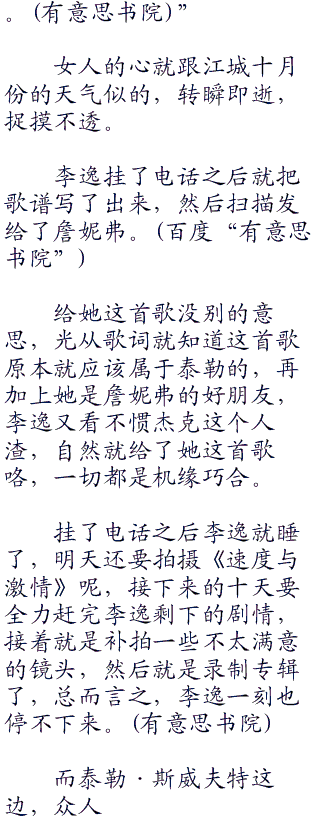 。(有意思书院)”
女人的心就跟江城十月
份的天气似的，转瞬即逝，
捉摸不透。
李逸挂了电话之后就把
歌谱写了出来，然后扫描发
给了詹妮弗。(百度“有意思
书院”)
给她这首歌没别的意
思，光从歌词就知道这首歌
原本就应该属于泰勒的，再
加上她是詹妮弗的好朋友，
李逸又看不惯杰克这个人
渣，自然就给了她这首歌
咯，一切都是机缘巧合。
挂了电话之后李逸就睡
了，明天还要拍摄《速度与
激情》呢，接下来的十天要
全力赶完李逸剩下的剧情，
接着就是补拍一些不太满意
的镜头，然后就是录制专辑
了，总而言之，李逸一刻也
停不下来。(有意思书院)
而泰勒·斯威夫特这
边，众人